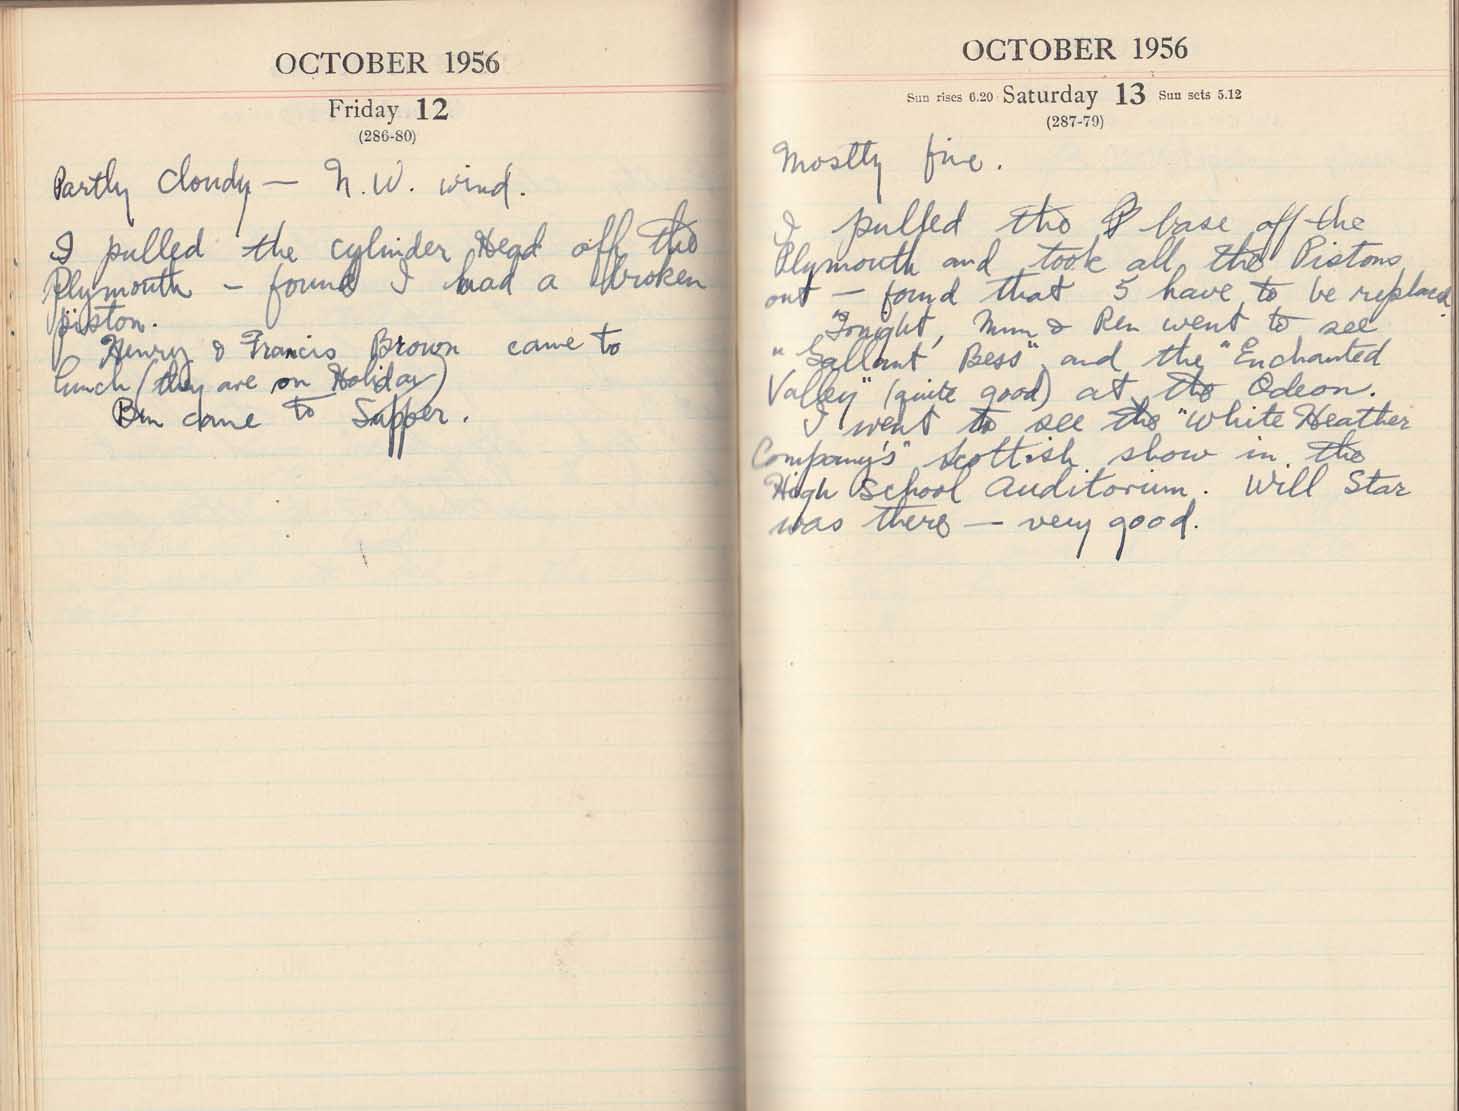 OCTOBER 1956
Friday 12
(286-80)
Partly cloudy — N.W. wind.
I pulled the cylinder Head off the
Plymouth - found I had a broken
piston.
Henry & Francis Brown came to
lunch (they are on Holiday)
Ben came to Supper.
OCTOBER 1956
Sun rises 6.20 Saturday 13 Sun sets 5.12
(287-79)
Mostly fine.
I pulled the base off the
Plymouth and took all the Pistons
out — found that 5 have to be replaced.
Tonight, Mum & Ren went to see
"Gallant Bess" and the "Enchanted
Valley" (quite good) at the Odeon.
I went to see the "White Heather
Company's" Scottish show in the
High School Auditorium. Will Star
was there — very good.